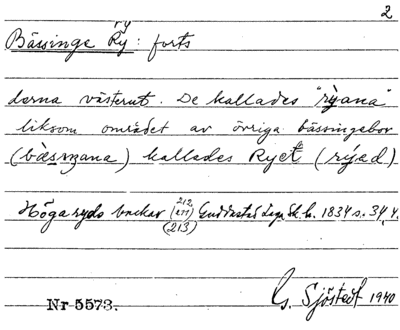 2
Bässinge Ry : forts
derna västerut. De kallades "rỳana"
liksom området av övriga bässingebor
(bæsıŋana) kallades Ryet (rýad)
Högaryds backar (212, 211) (213) Lagr. Sk. h. 1834 s. 34,4.
Nr 5573.
G. Sjöstedt 1940